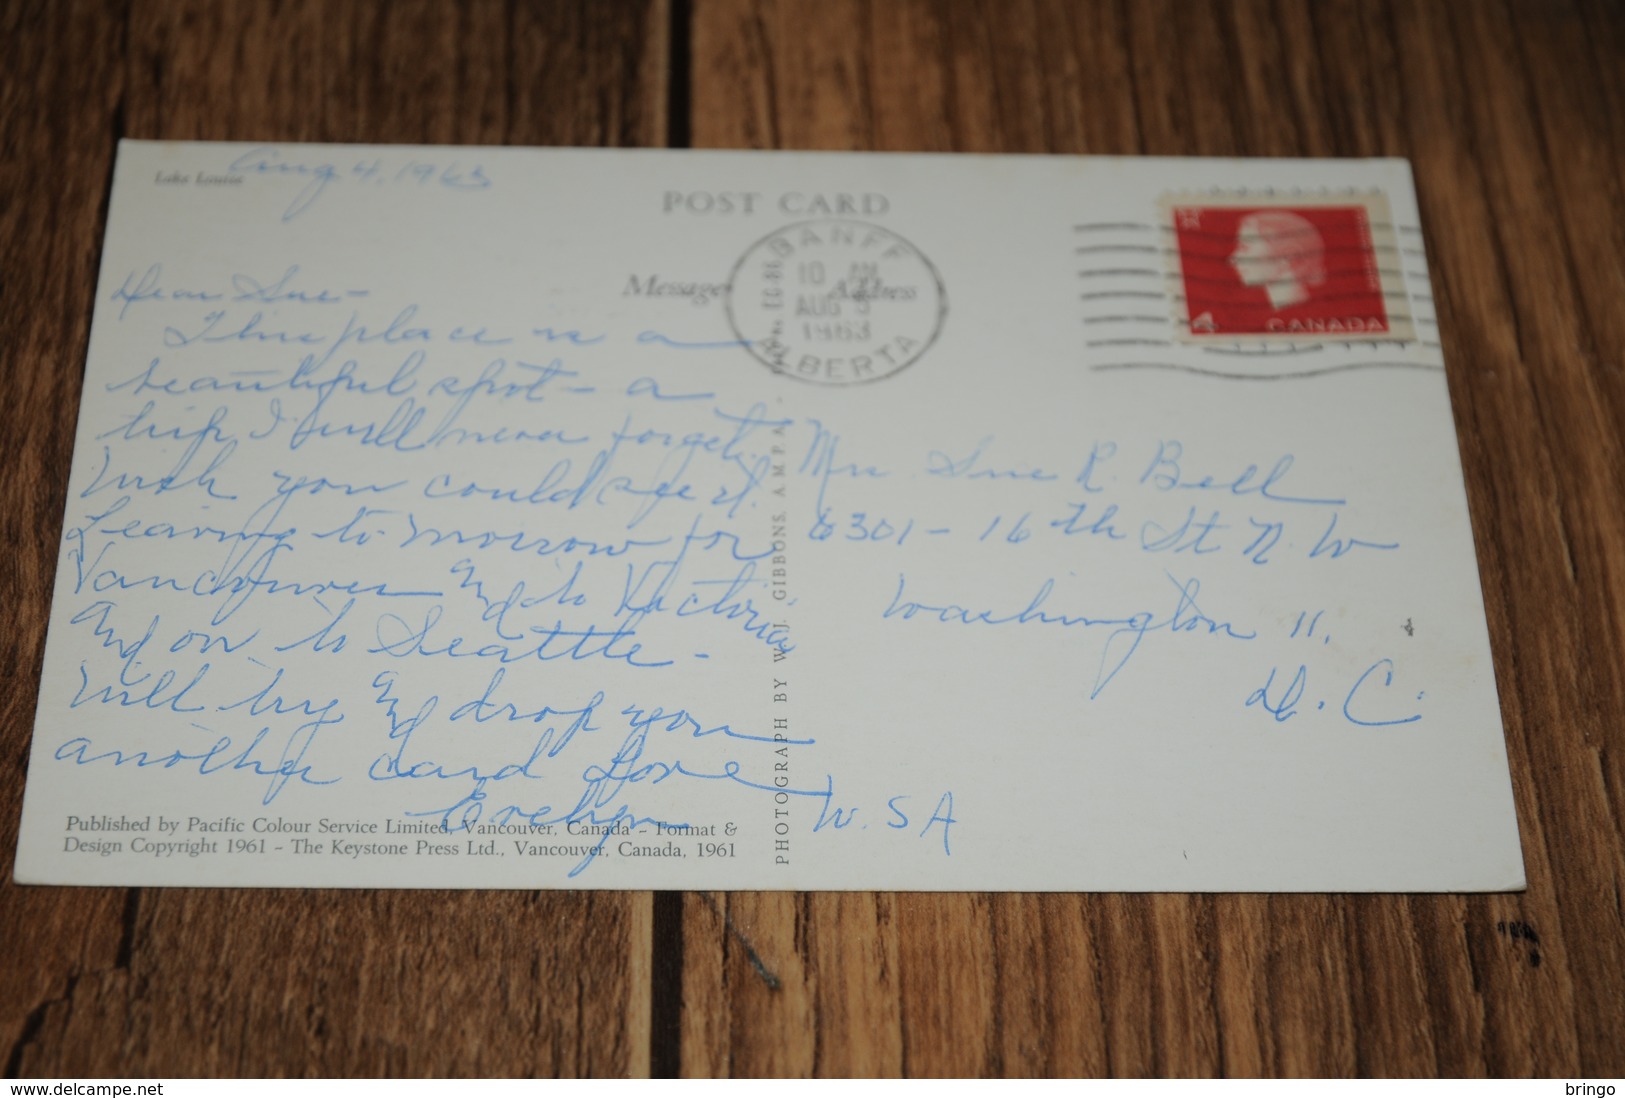 Lake Louise
Aug 4, 1963
POST CARD
Message
Address
BANFF
10 AM
AUG 5
1963
ALBERTA
4
CANADA
Dear Sue -
This place is a
beautiful spot - a
trip I will never forget.
Wish you could see it.
Leaving to-morrow for
Vancouver and to Victoria
and on to Seattle -
Will try and drop you
another card Love
Evelyn
Mrs Sue R. Bell
6301 - 16th St N.W
Washington 11.
D. C.
U. S A
Published by Pacific Colour Service Limited, Vancouver, Canada - Format &
Design Copyright 1961 - The Keystone Press Ltd., Vancouver, Canada, 1961
PHOTOGRAPH BY W. J. GIBBONS, A.M.P.A.
www.delcampe.net
bringo